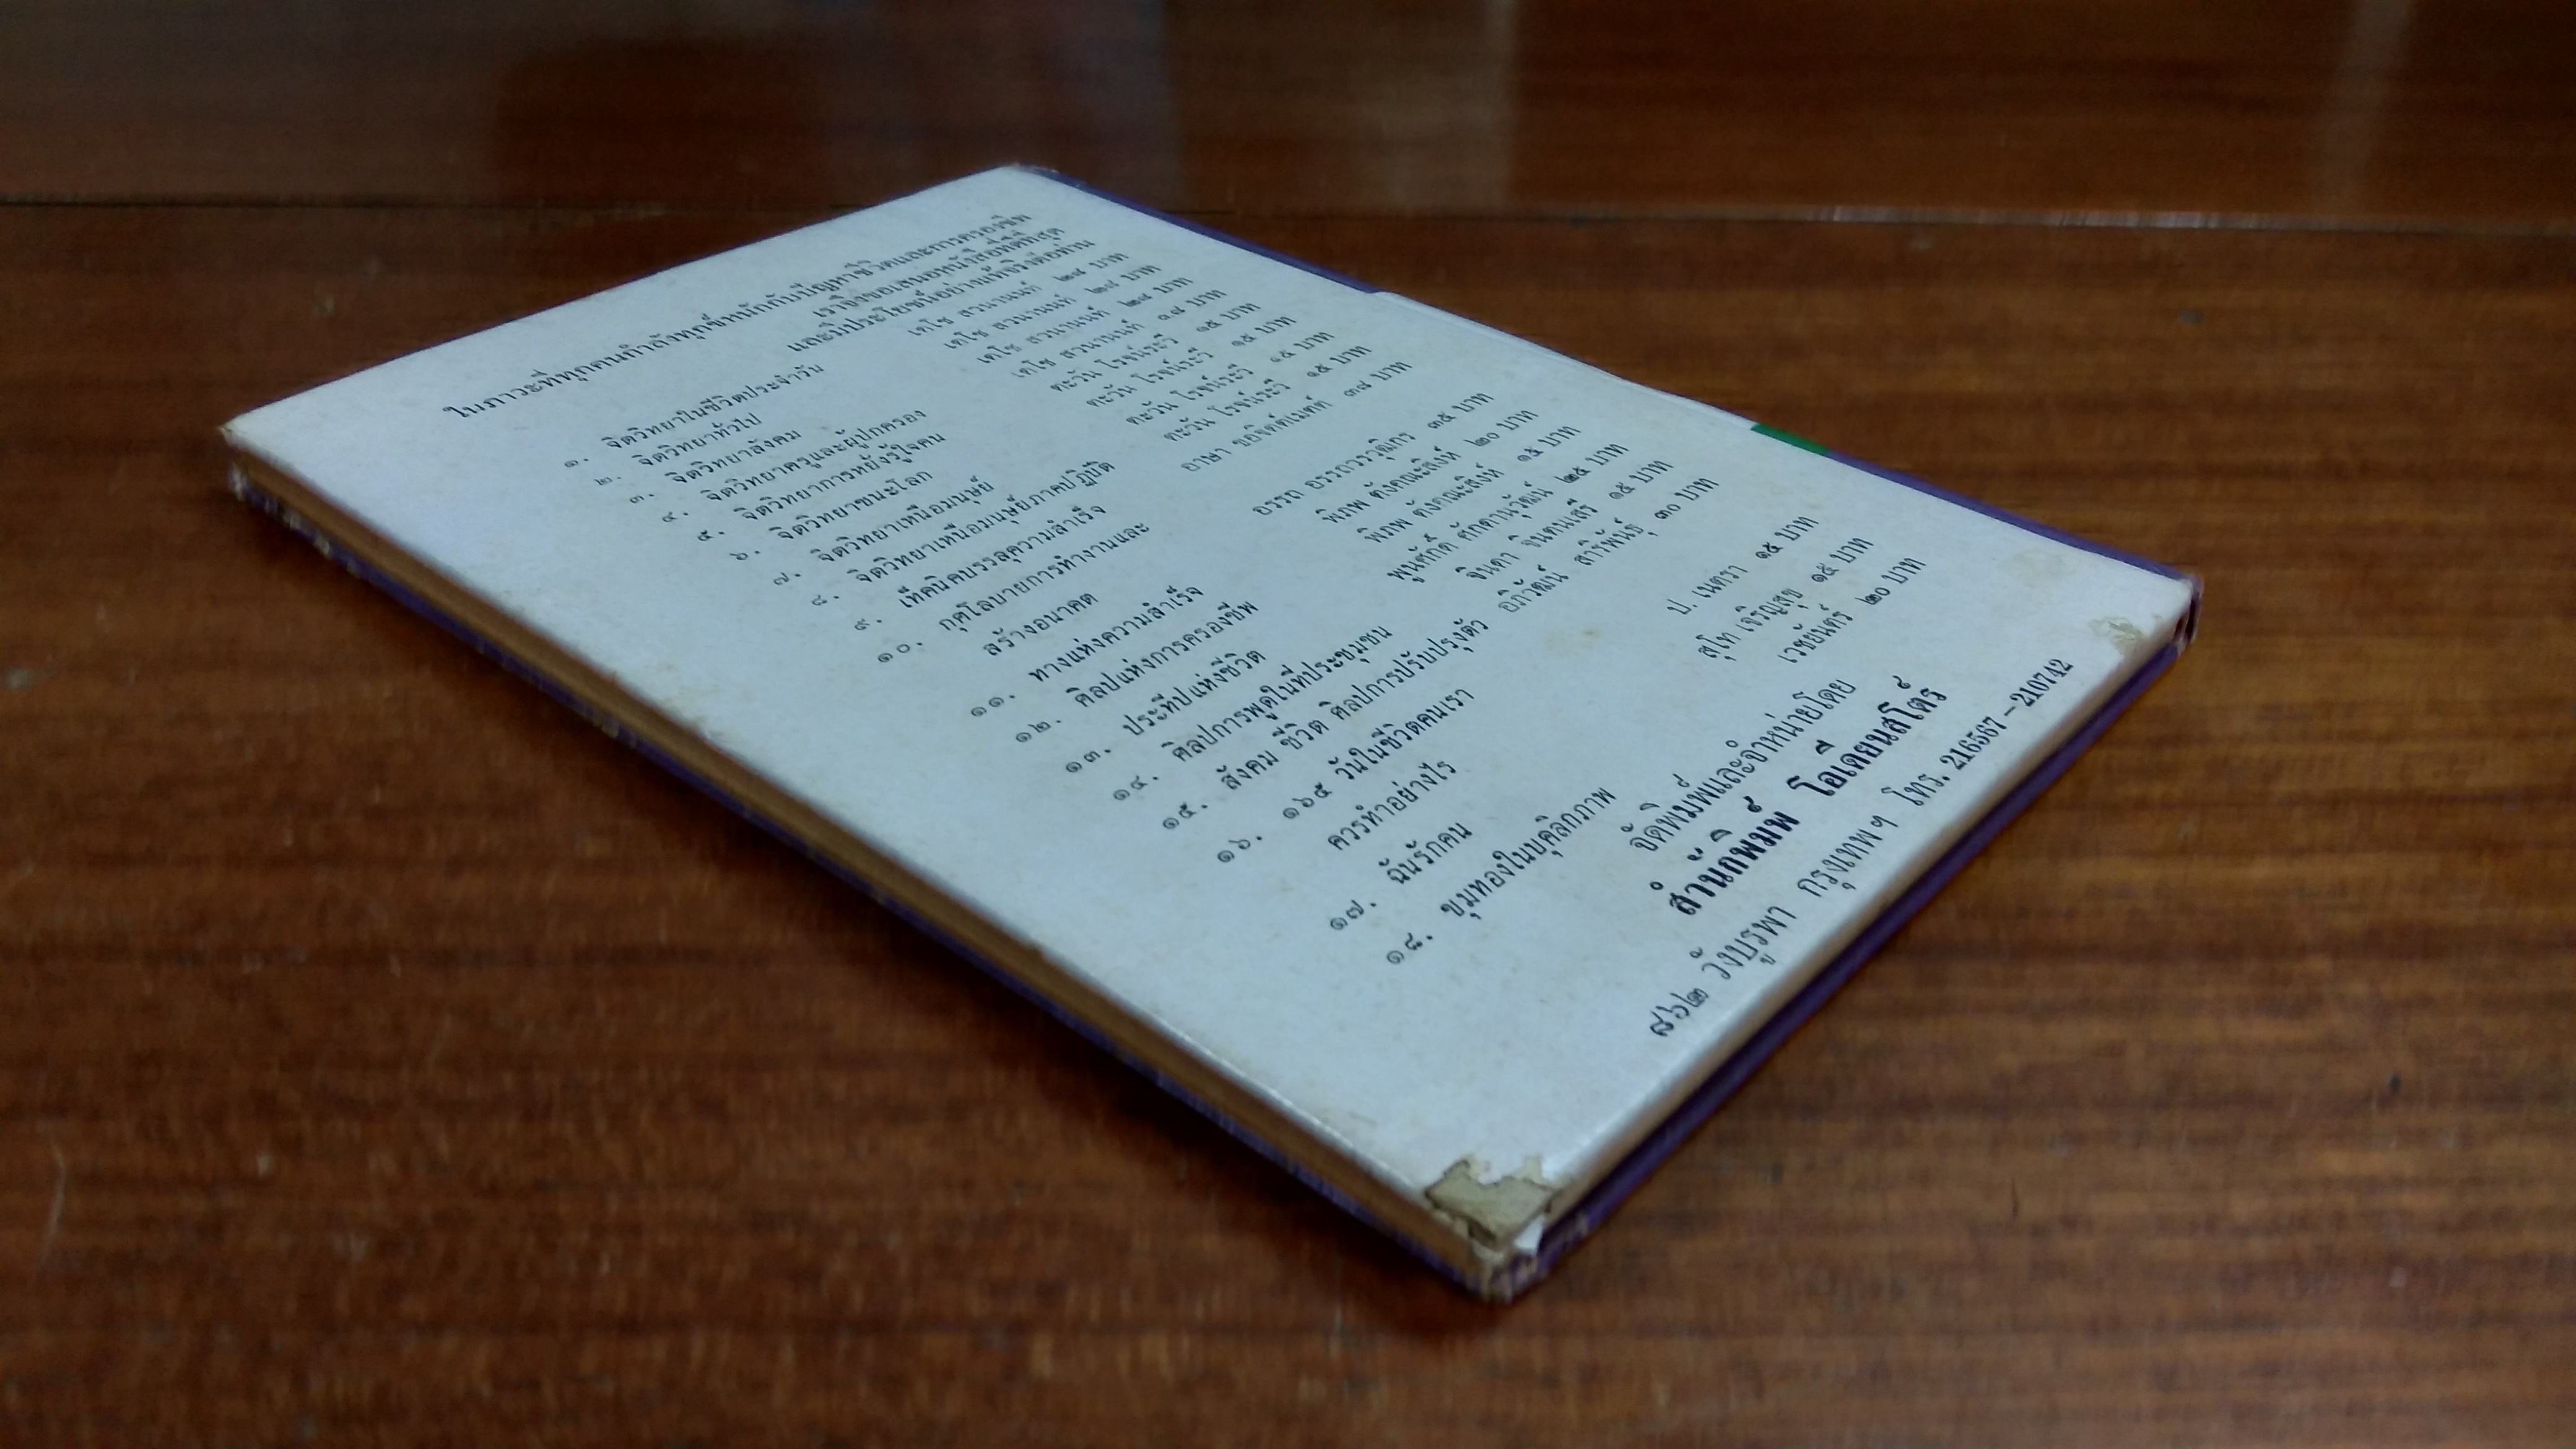 ในภาวะที่ทุกคนกำลังทุกข์หนักกับปัญหาชีวิตและการครองชีพ
เราจึงขอเสนอหนังสือที่ดีที่สุด
และมีประโยชน์อย่างแท้จริงต่อท่าน
๑. จิตวิทยาในชีวิตประจำวัน เดโช สวนานนท์ บาท
๒. จิตวิทยาทั่วไป เดโช สวนานนท์ บาท
๓. จิตวิทยาสังคม เดโช สวนานนท์ บาท
๔. จิตวิทยาครูและผู้ปกครอง เดโช สวนานนท์ บาท
๕. จิตวิทยาการหยั่งรู้ใจคน ตะวัน โรจน์ระวี ๑๕ บาท
๖. จิตวิทยาชนะโลก ตะวัน โรจน์ระวี ๑๕ บาท
๗. จิตวิทยาเหนือมนุษย์ ตะวัน โรจน์ระวี ๑๕ บาท
๘. จิตวิทยาเหนือมนุษย์ภาคปฏิบัติ ตะวัน โรจน์ระวี ๑๕ บาท
๙. เท็คนิคบรรลุความสำเร็จ อาษา ขอจิตต์เมตต์ บาท
๑๐. กุศโลบายการทำงานและ
สร้างอนาคต อรรถ อรรถวรวุฒิกร ๓๕ บาท
๑๑. ทางแห่งความสำเร็จ พิภพ ตังคณะสิงห์ ๒๐ บาท
๑๒. ศิลปแห่งการครองชีพ พิภพ ตังคณะสิงห์ ๑๕ บาท
๑๓. ประทีปแห่งชีวิต พูนศักดิ์ ศักดานุวัฒน์ ๒๕ บาท
๑๔. ศิลปการพูดในที่ประชุมชน จินดา จินตนเสรี ๑๕ บาท
๑๕. สังคม ชีวิต ศิลปการปรับปรุงตัว อภิวัฒน์ สาริพันธุ์ ๓๐ บาท
๑๖. ๑๖๕ วันในชีวิตคนเรา
ควรทำอย่างไร ป. เนตรา ๑๕ บาท
๑๗. ฉันรักคน สุโท เจริญสุข ๑๕ บาท
๑๘. ขุมทองในบุคลิกภาพ เวชยันตร์ ๒๐ บาท
จัดพิมพ์และจำหน่ายโดย
สำนักพิมพ์ โอเดียนสโตร์
๘๖๒ วังบูรพา กรุงเทพฯ โทร. 216567-210742